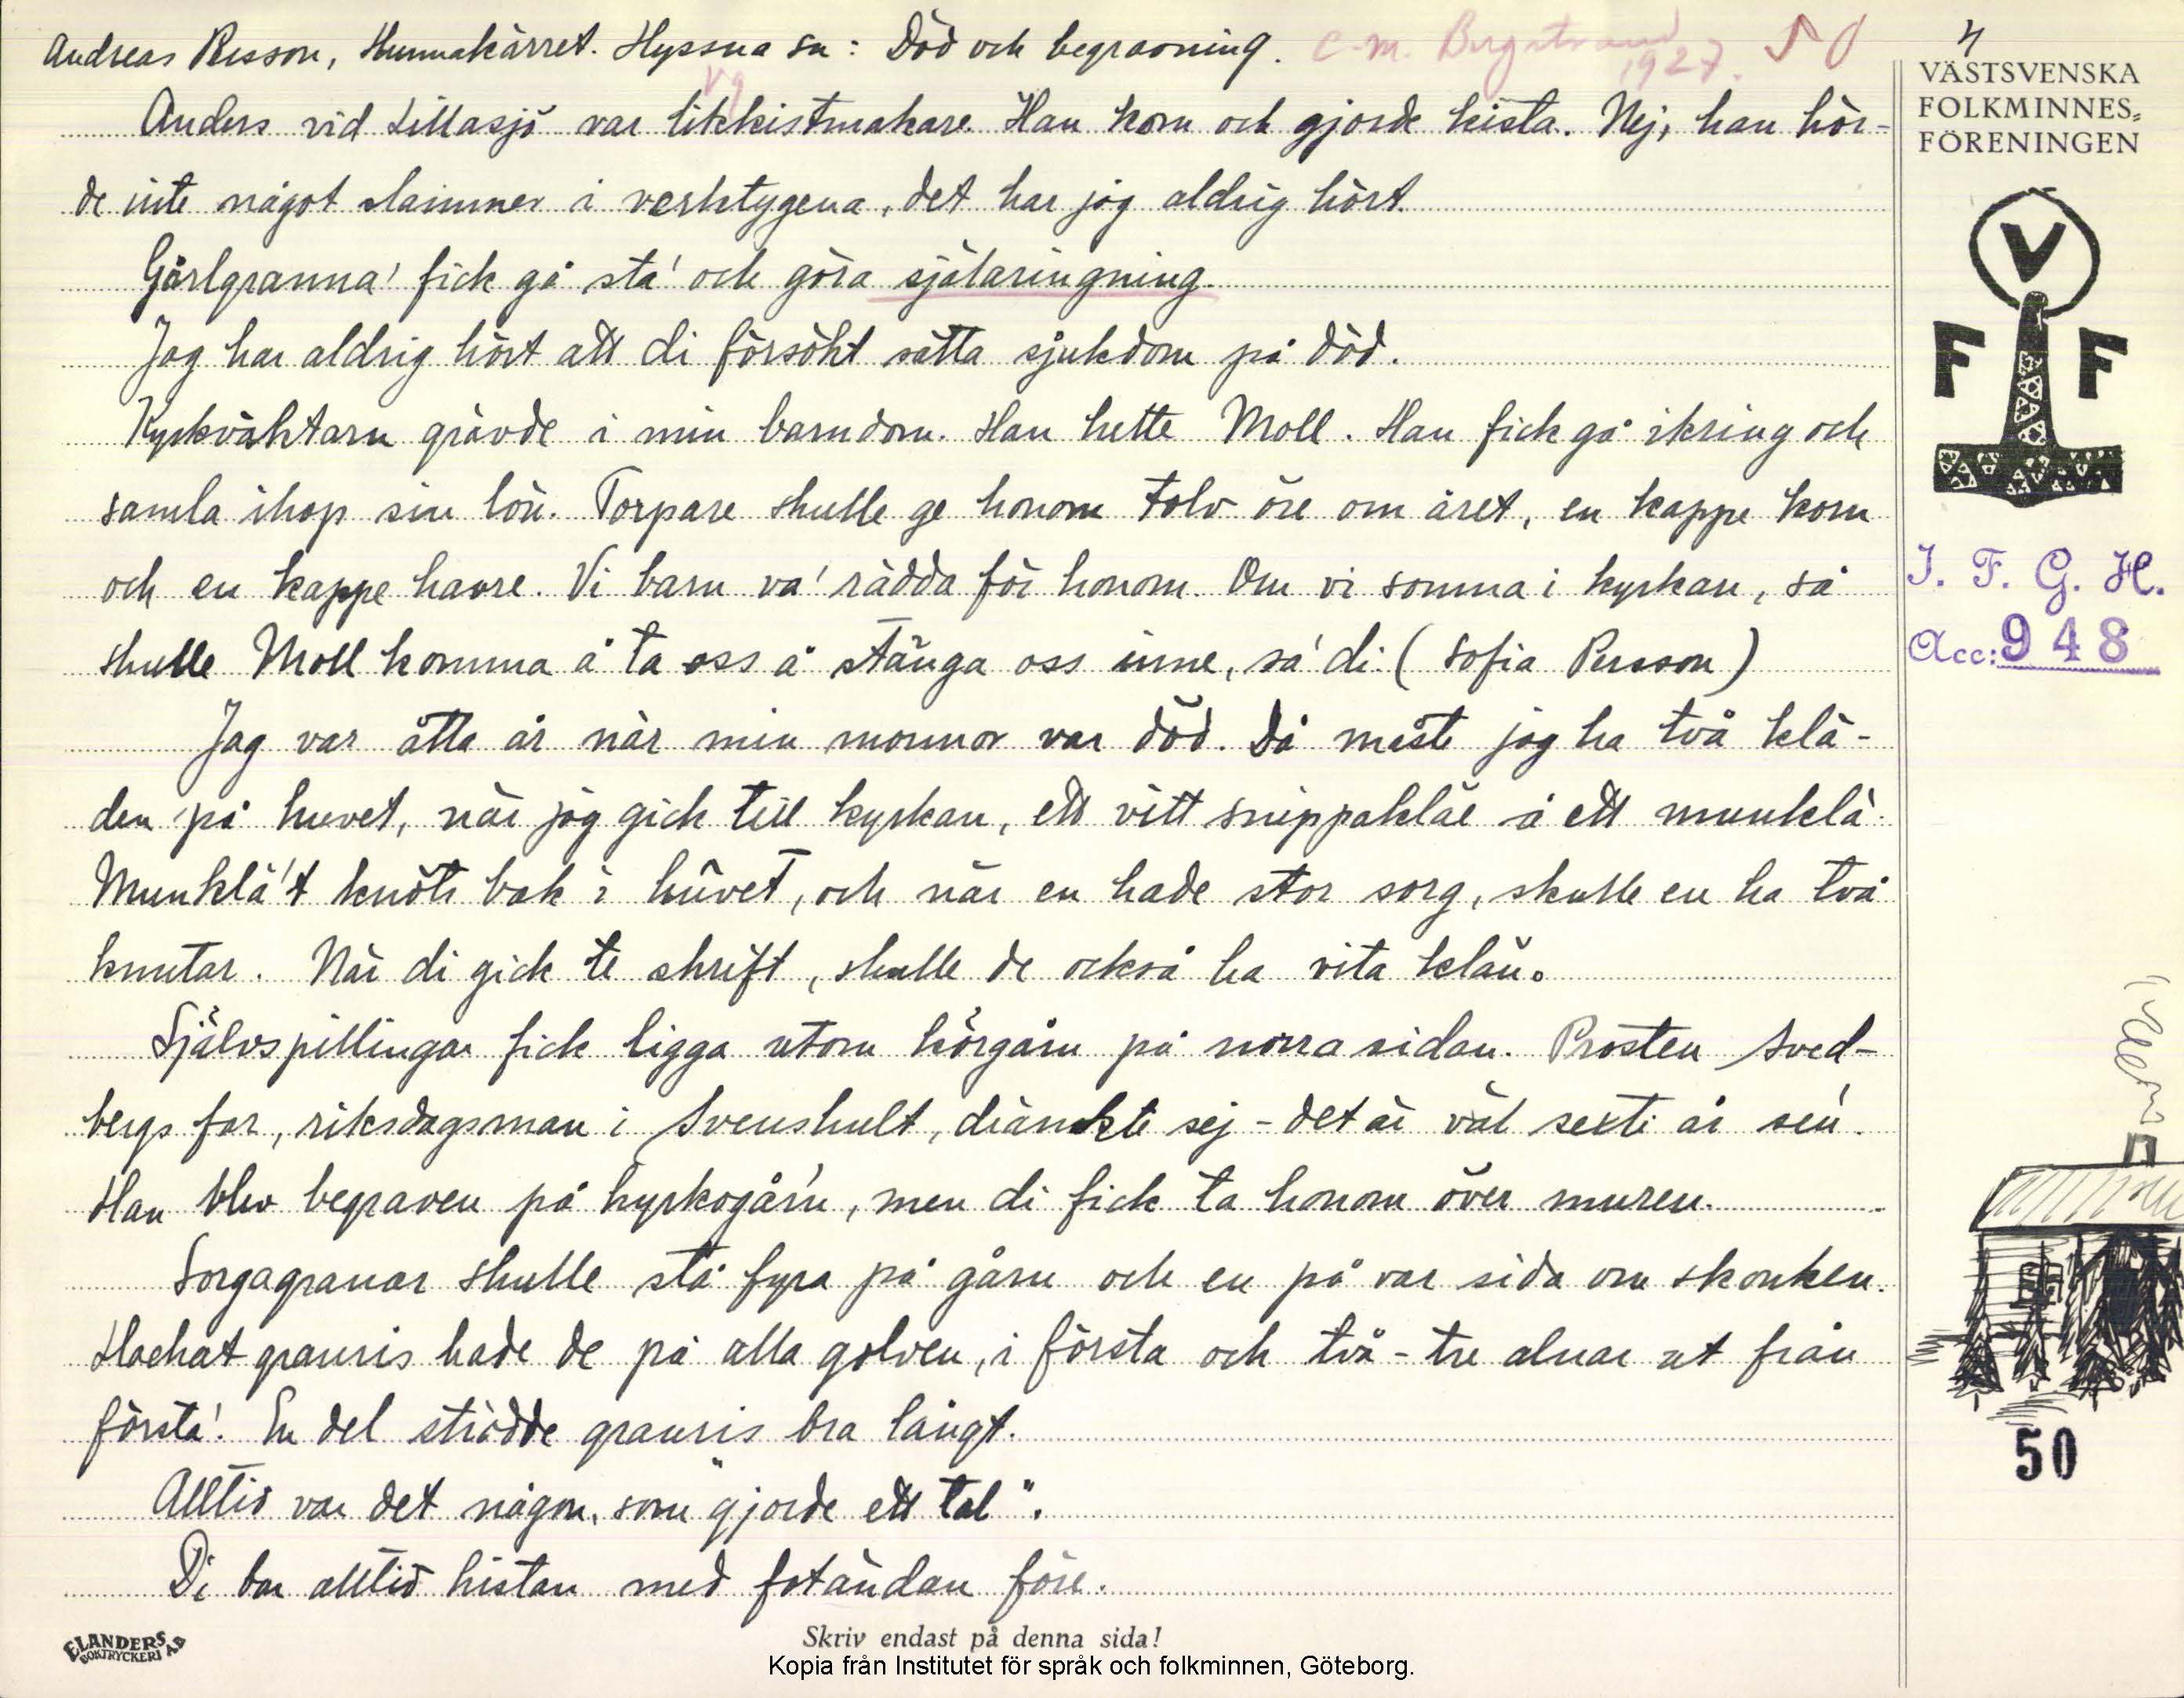 Andreas Persson, Hunnakärret. Hyssna sn: Död och begravning. C-M. Bergstrand 1927. 50 4
Vg
Anders vid Lillasjö var likkistmakare. Han kom och gjorde kista. Nej, han hör-
de inte något slammer i verktygena, det har jag aldrig hört.
Gårlgranna' fick gå sta' och göra själaringning.
Jag har aldrig hört att di försökt sätta sjukdom på död.
Kyrkväktarn grävde i min barndom. Han hette Moll. Han fick gå ikring och
samla ihop sin lön. Torpare skulle ge honom tolv öre om året, en kappe korn
och en kappe havre. Vi barn va' rädda för honom. Om vi somna i kyrkan, så
skulle Moll komma å ta oss å stänga oss inne, sa' di. (Sofia Persson)
Jag var åtta år när min mormor var död. Då måste jag ha två klä-
den på huvet, när jag gick till kyrkan, ett vitt snippakläe å ett munklä.
Munklä't knöts bak i huvet, och när en hade stor sorg, skulle en ha två
knutar. När di gick te skrift, skulle de också ha vita klän.
Självspillingar fick ligga utom körgårn på norra sidan. Prosten Sved-
bergs far, riksdagsman i Svenshult, dränkte sej - det är väl sexti år sen.
Han blev begraven på kyrkogår'n, men di fick ta honom över muren.
Sorgagranar skulle stå fyra på gårn och en på var sida om skonken.
Hackat granris hade de på alla golven, i första och två-tre alnar ut från
första'. En del strödde granris bra långt.
Alltid var det någon, som "gjorde ett tal".
Di bar alltid kistan med fotändan före.
VÄSTSVENSKA
FOLKMINNES-
FÖRENINGEN
V
F F
I. F. G. H.
Acc: 948
50
ELANDERS BOKTRYCKERI AB
Skriv endast på denna sida!
Kopia från Institutet för språk och folkminnen, Göteborg.